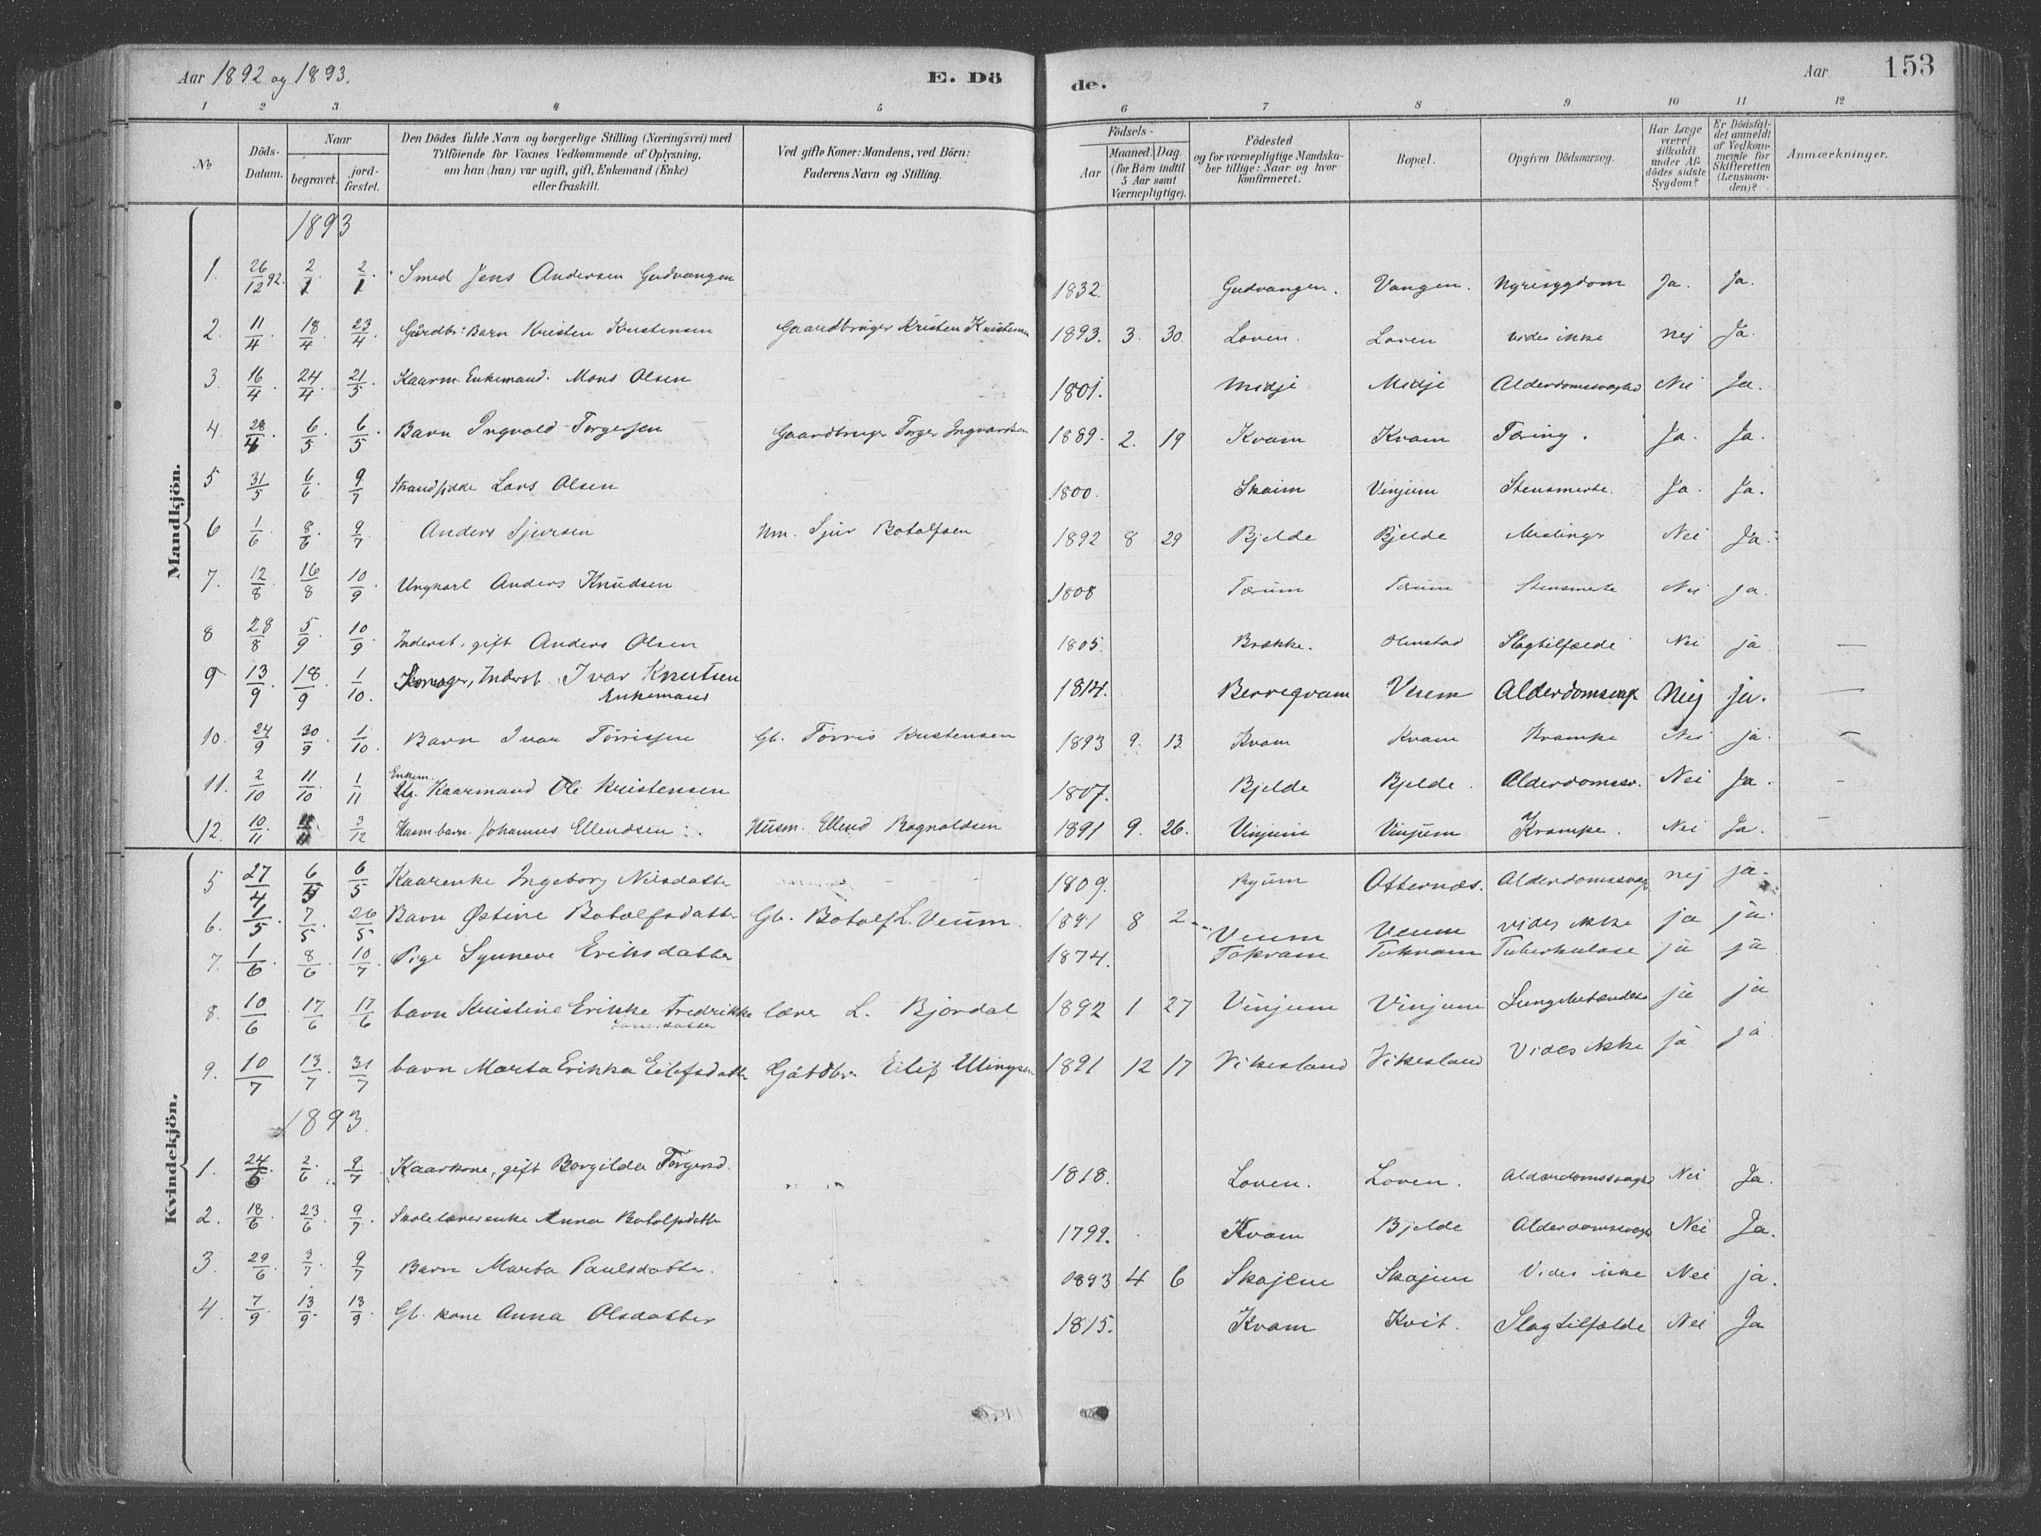 Aar 1892 og 1893. E. Dö de. Aar 153
1 2 3 4 5 6 7 8 9 10 11 12
No Döds-Datum. Naar begravet. jordfæstet. Den Dödes fulde Navn og borgerlige Stilling (Næringsvei) med Tilföiende for Voxnes Vedkommende af Oplysning, om han (hun) var ugift, gift, Enkemand (Enke) eller fraskilt. Ved gifte Koner: Mandens, ved Börn: Faderens Navn og Stilling. Födsels- Aar Maaned. Dag. (for Börn indtil 5 Aar samt Værnepligtige). Födested og for værnepligtige Mandskaber tillige: Naar og hvor konfirmeret. Bopæl. Opgiven Dödsaarsag. Har Læge været tilkaldt under Afdödes sidste Sygdom? Er Dödsfaldet anmeldt af Vedkommende for Skifteretten (Lensmanden)? Anmærkninger.
Mandkjön.
1893
1. 26/12 92. 2/1. 2/1. Smed Jens Andersen Gudvangen 1832. Gudvangen. Vangen. Nyresygdom Ja. Ja.
2. 11/4 18/4. 23/4. Gårdbr: Barn Kristen Kristensen Gaardbruger Kristen Kristensen 1893. 3. 30. Loven. Loven vides ikke nej Ja.
3. 16/4 24/4. 21/5. Kaarm. Enkemand. Mons Olsen 1801. Midje Midje Alderdomssvaghd Nei Ja.
4. 28/4 6/5. 6/5 Barn Ingvald Torgersen Gaardbruger Torger Ingvardsen 1889. 2. 19 Kvam Kvam Tæring. Ja. Ja.
5 31/5 6/6. 9/7 Lars Olsen 1800. Skaim Vinjum Stensmerte. Ja. Ja.
6 1/6 8/6. 9/7. Anders Sjursen Hm. Sjur Botolfsen 1892 8 29 Bjelde Bjelde Meslinger Nei Ja.
7. 12/8 16/8 10/9. Ungkarl Anders Knudsen 1808 Tærum Tærum Stensmerte Nei ja.
8 28/8 5/9. 10/9 Inderst, gift Anders Olsen 1805. Brække. Slagtilfælde Nei ja —
9 13/9 18/9. 1/10. Inderst. Ivar Knutsen Enkemand 1814. Berregvam Veum Alderdomsvagh Nej ja. —
10. 24/9 30/9 1/10. Barn Ivar Tørrissen Gb. Tørris Kristensen 1893 9. 13. Kvam Kvam Krampe Nei ja. —
11. 2/10 11/10. 1/11 Enkem. Kaarmand Ole Kristensen 1807. Bjelde Bjelde. Alderdomssv. Nei Ja. —
12. 10/11 3/12 Husm barn Johannes Ellendsen. Husm. Ellend Ragnoldsen 1891 9. 26. Vinjum Vinjum Krampe. Nei Ja. —
Kvindekjön.
5 27/4 6/5 6/5 Kaarenke Ingeborg Nilsdatter 1809. Ryum Otternæs. Alderdomssvagh nej ja.
6. 1/5. 7/5. 26/5 Barn Østine Botolfsdatter Gb. Botolf L. Veum. 1891 8 2 Veum Veum vides ikke ja ja.
7. 1/6. 8/6 10/7 Pige Synneve Eriksdatter 1874. Tokvam Tokvam Tuberkulose ja ja
8. 10/6 17/6 17/6 barn Kristine Erikke Fredrikke lærer L. Bjørdal 1892 1 27 Vinjum Vinjum Lungebetændelse ja ja
9. 10/7 13/7. 31/7 barn Marta Erikka Eilefsdatter Gårdbr Eilif Ellingsen 1891 12 17 Vikesland Vikesland Vides ikke ja ja.
1893.
1. 24/5. 2/6. 9/7. Kaarkone, gift Borgilda Torgersd. 1818. Loven. Loven. Alderdomssvaghd Nei Ja.
2. 18/6 23/6 9/7. Skolelærerenke Anna Botolfsdatter 1799. Kvam Bjelde Alderdomsvagh Nei Ja.
3. 29/6. 3/7. 9/7 Barn Marta Paulsdatter. 1893 4 6 Skajem Skajem Vides ikke Nei ja.
4. 7/9 13/9. 13/9. Gb. kone Anna Olsdatter 1815. Kvam Kvit. Slagtilfælde Nei Ja